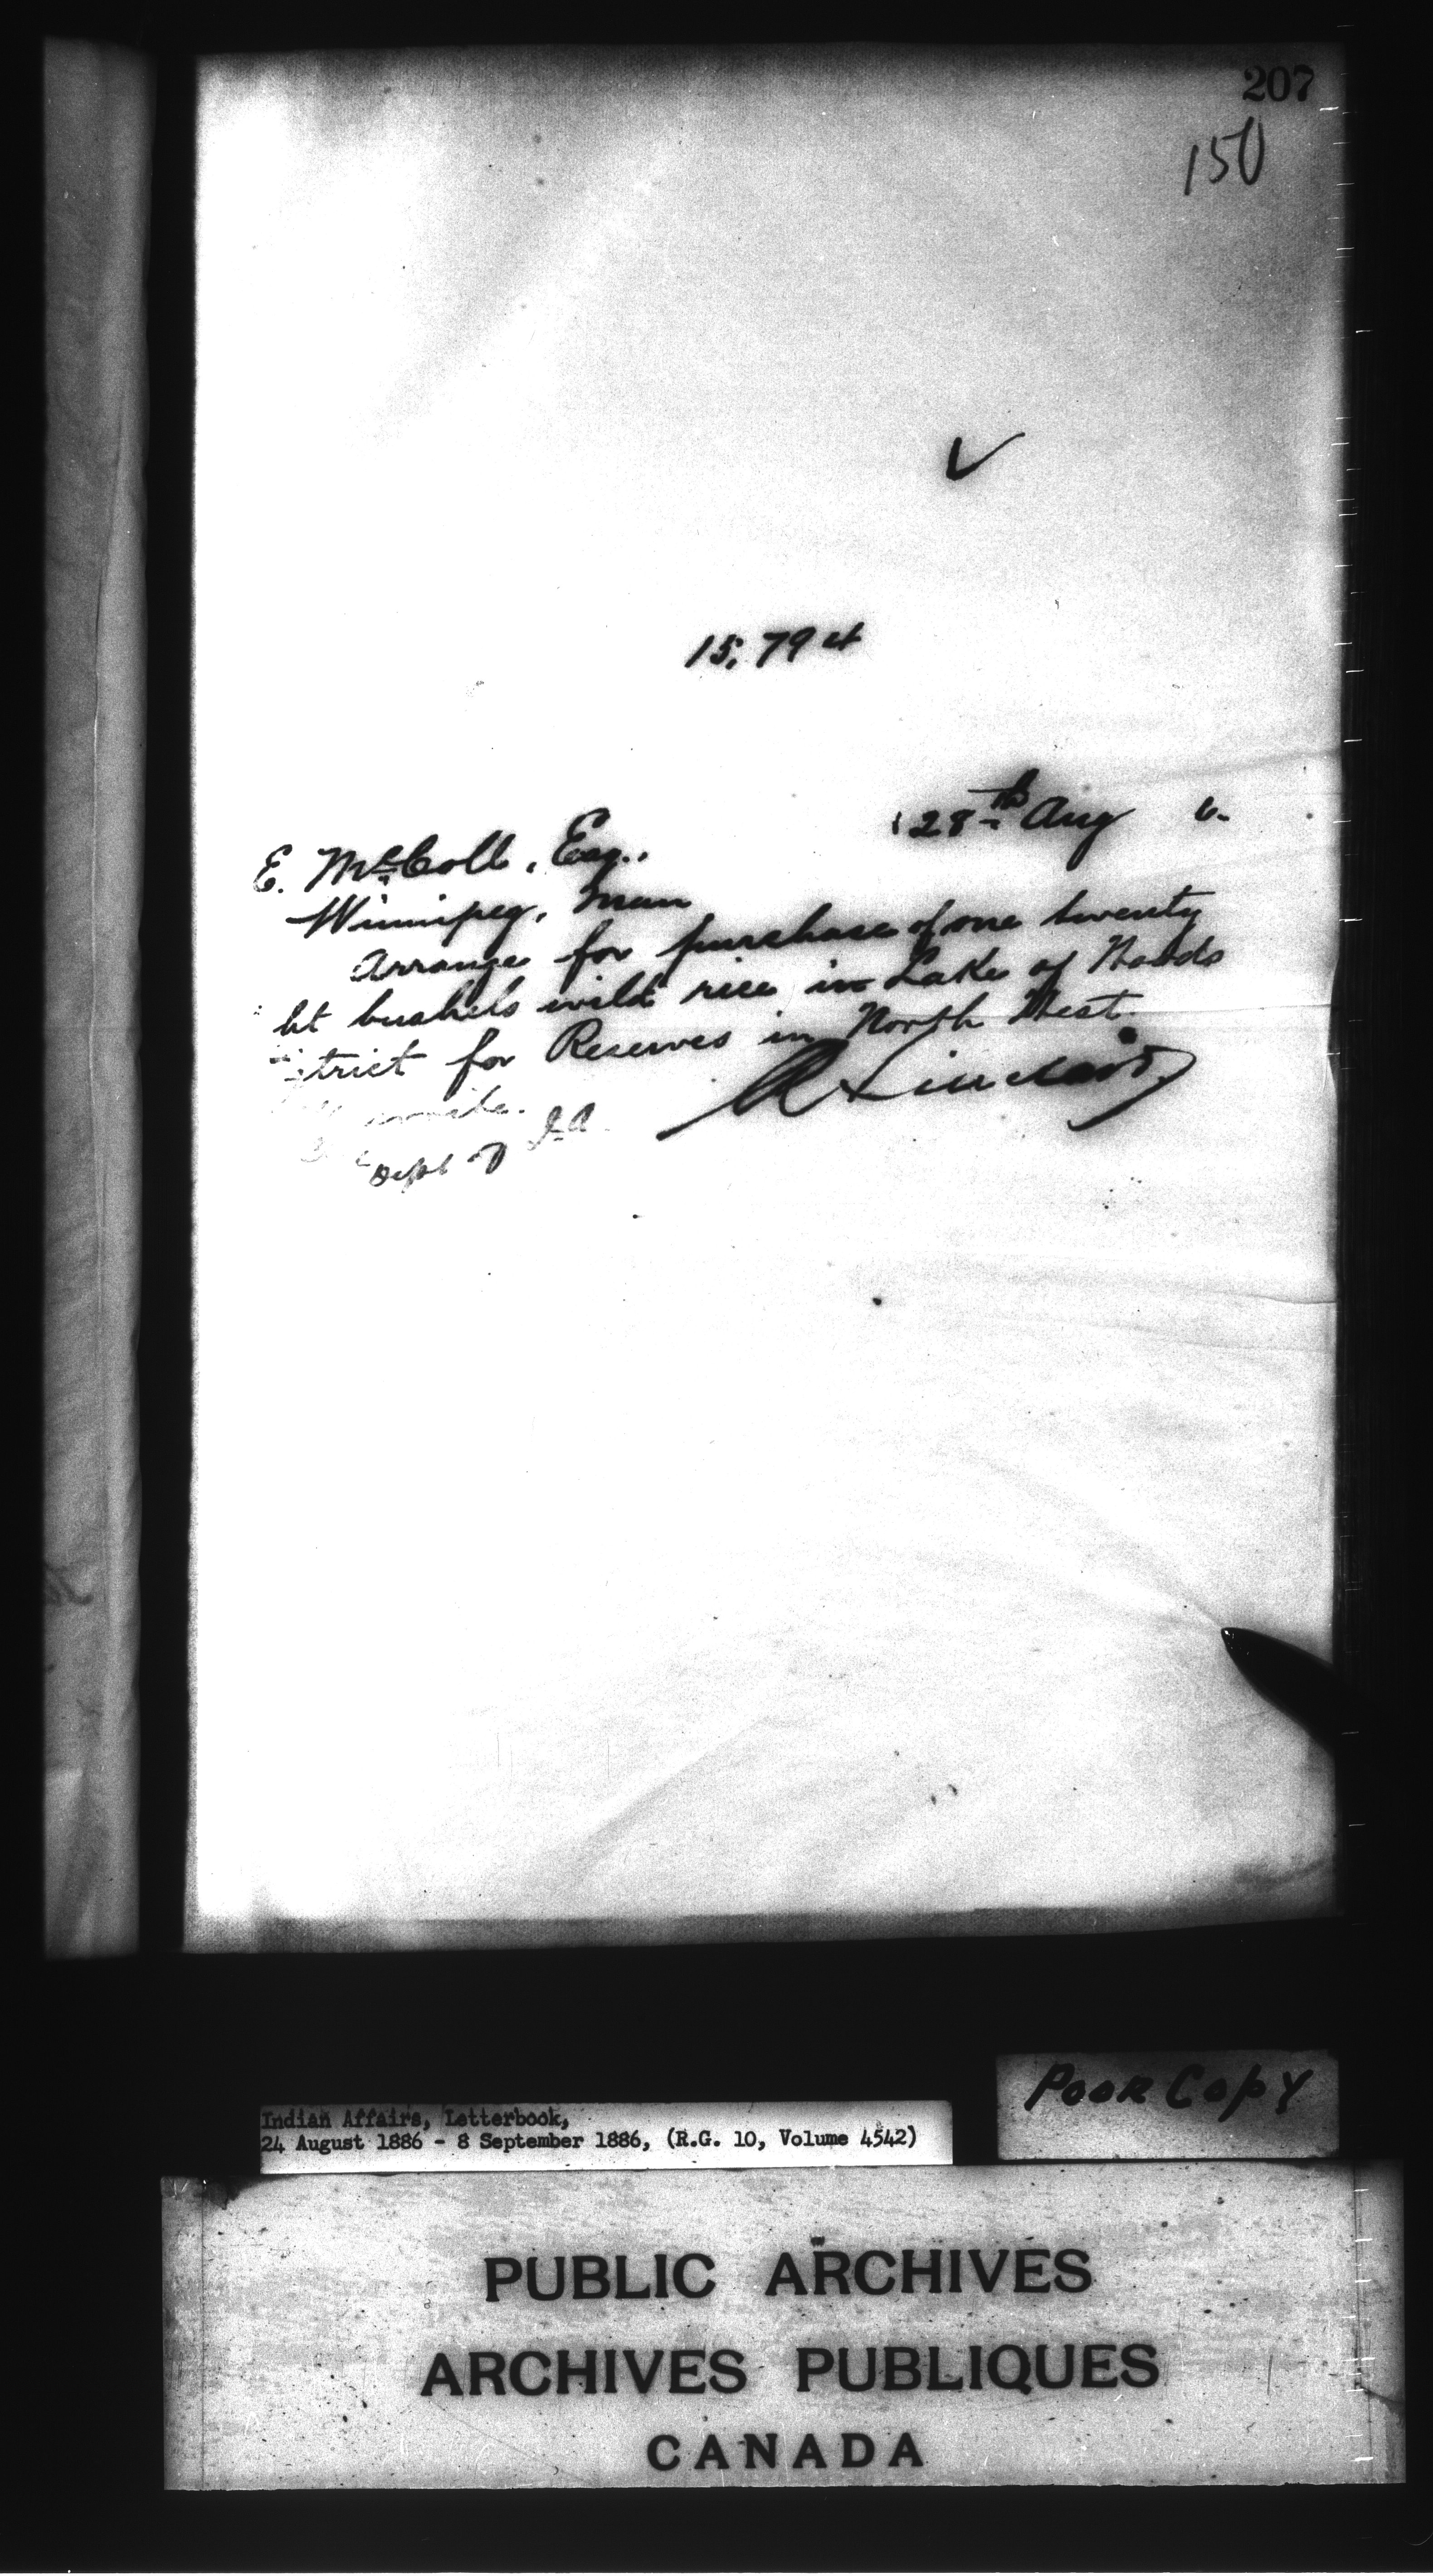 207
150
15,794
28th Aug 6.
E. McColl, Esq.,
Winnipeg, Man
Arrange for purchase of one twenty
ht bushels wild rice in Lake of Woods
trict for Reserves in North West.
R Sinclair
Dept of I.A.
Poor Copy
Indian Affairs, Letterbook,
24 August 1886 - 8 September 1886, (R.G. 10, Volume 4542)
PUBLIC ARCHIVES
ARCHIVES PUBLIQUES
CANADA